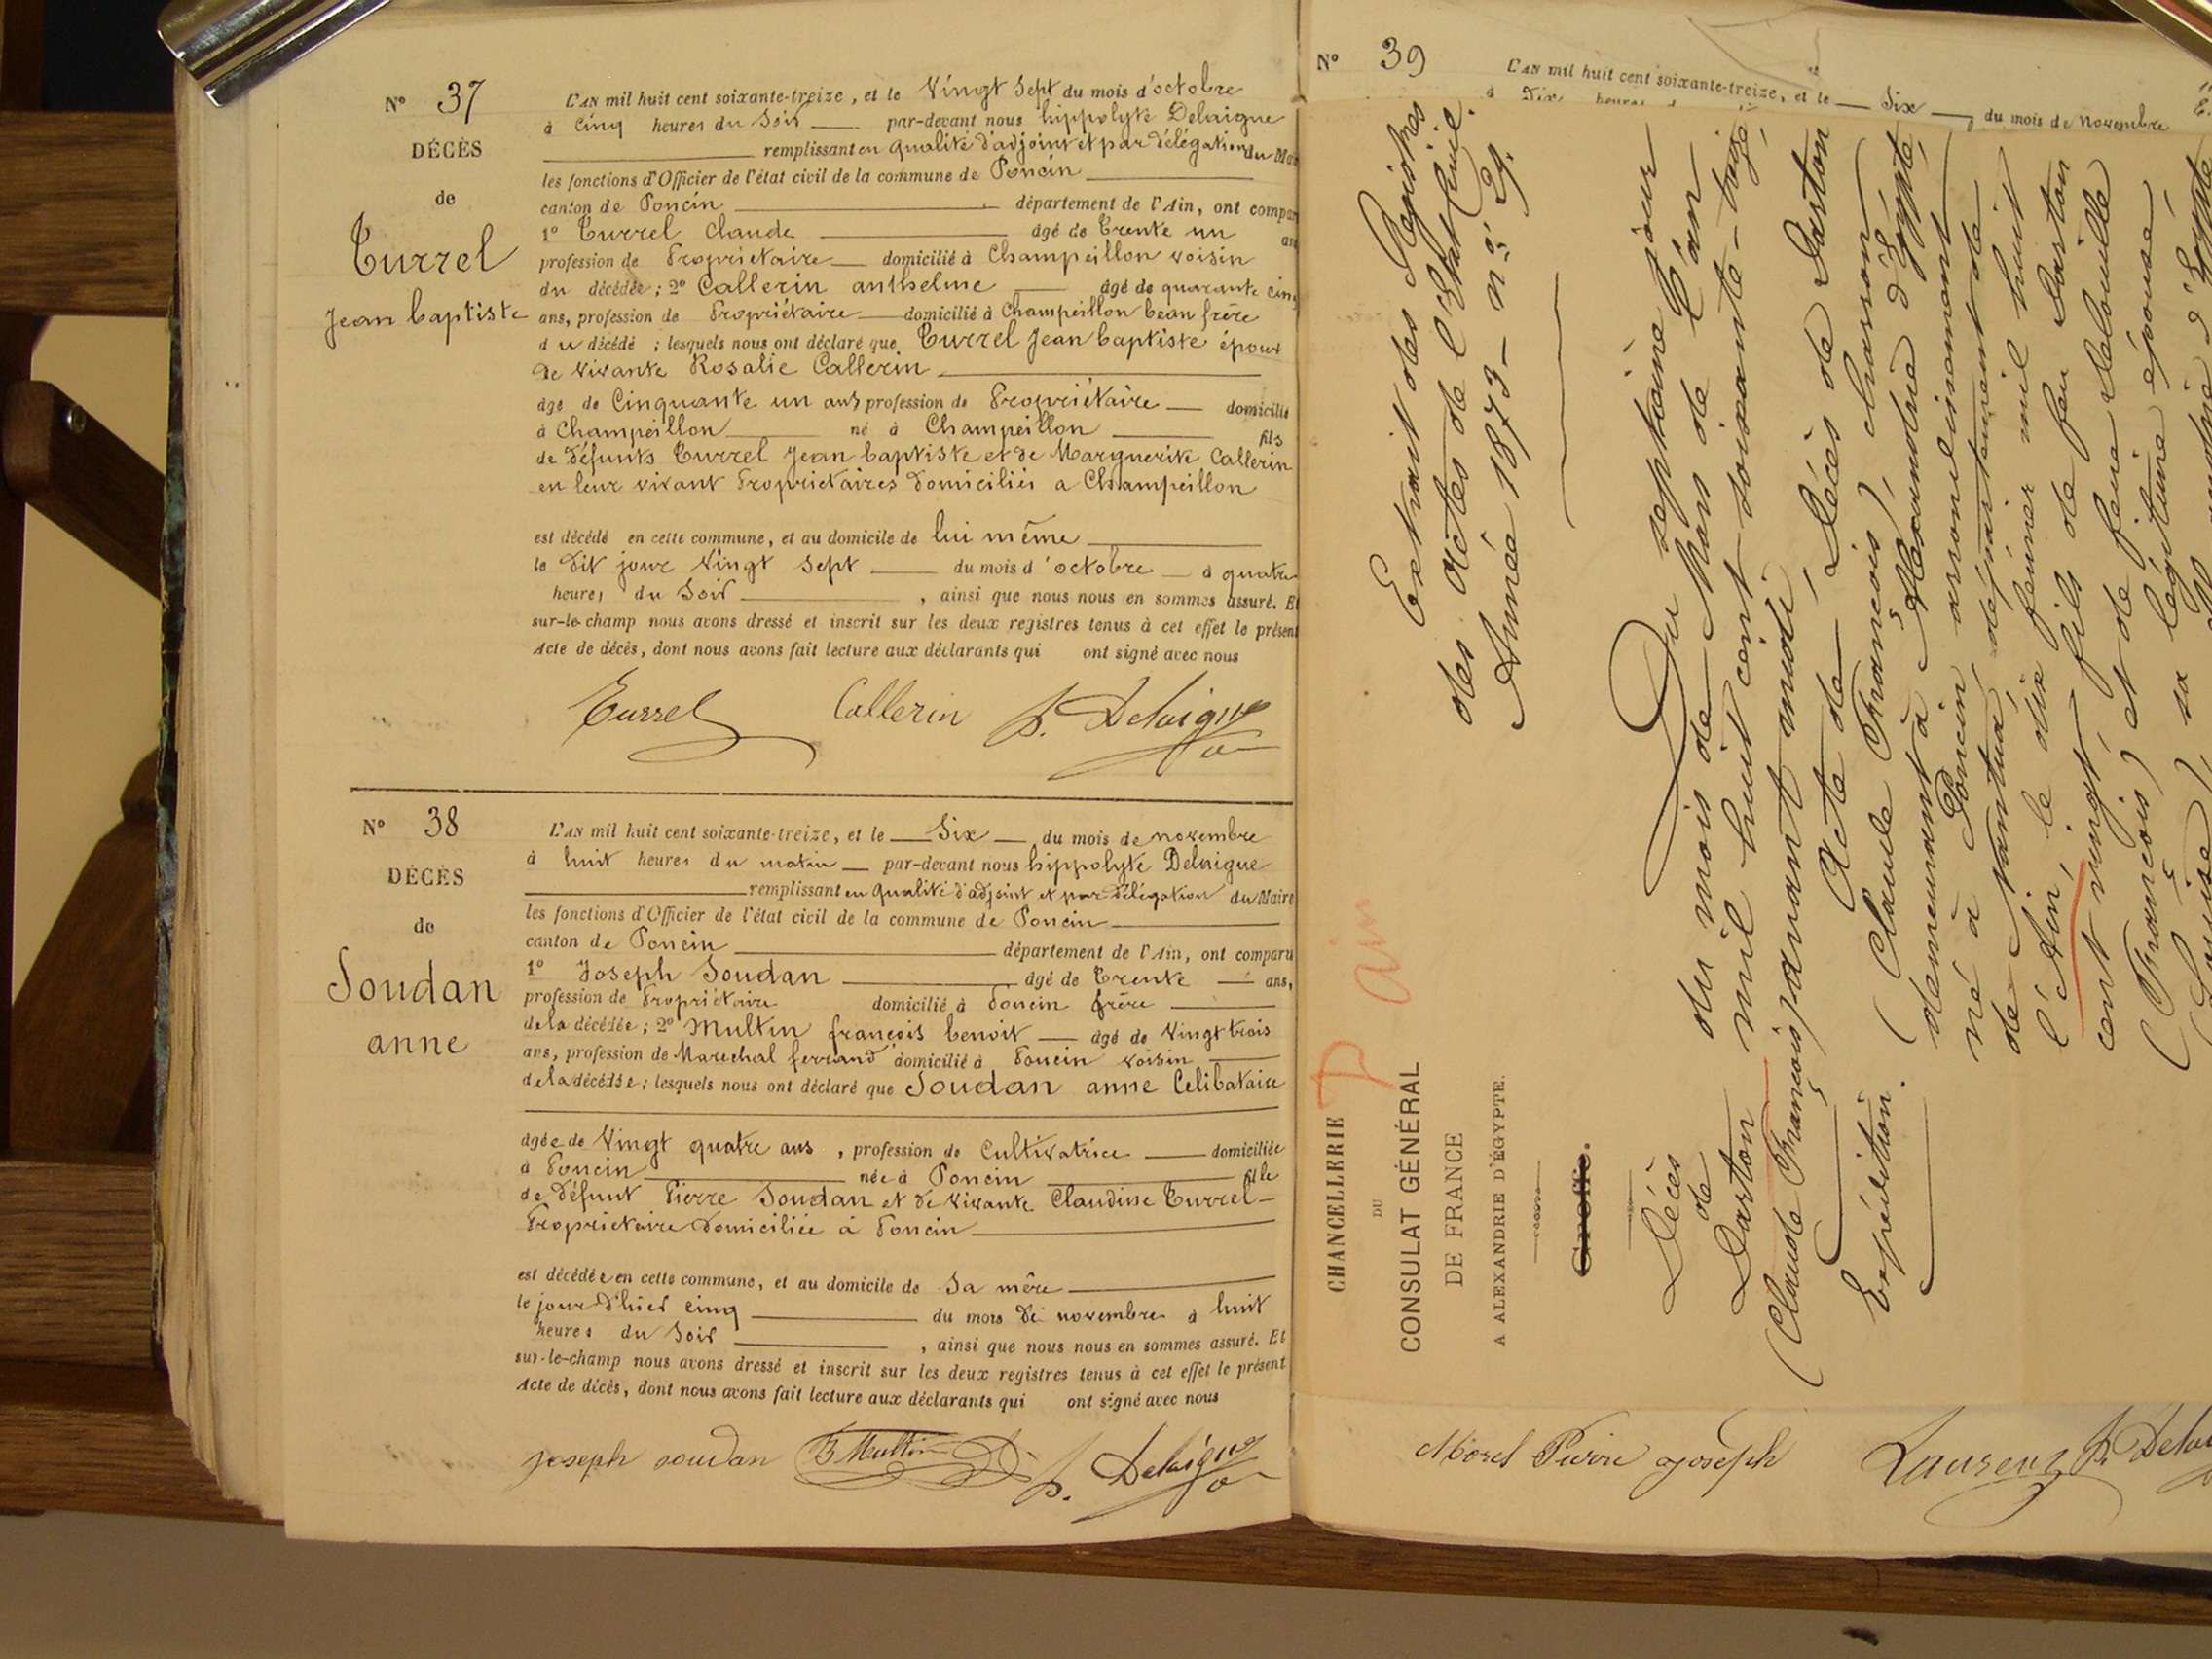 N° 37
DÉCÈS
de
Turrel
Jean baptiste
L'AN mil huit cent soixante-treize, et le Vingt Sept du mois d'octobre
à Cinq heures du Soir par-devant nous hippolyte Delaigue
remplissant en qualité d'adjoint et par délégation du Mai
les fonctions d'Officier de l'état civil de la commune de Poncin
canton de Poncin département de l'Ain, ont compar
1° Turrel Claude âgé de Trente un an
profession de Propriétaire domicilié à Champeillon voisin
du décédée; 2° Callerin anthelme âgé de quarante cinq
ans, profession de Propriétaire domicilié à Champeillon beau frère
du décédé ; lesquels nous ont déclaré que Turrel Jean baptiste époux
de vivante Rosalie Callerin
âgé de Cinquante un ans profession de Propriétaire domicilié
à Champeillon né à Champeillon fils
de défunts Turrel Jean baptiste et de Marguerite Callerin
en leur vivant Propriétaires domiciliés a Champeillon
est décédé en cette commune, et au domicile de lui même
le dit jour Vingt Sept du mois d'octobre à quatre
heures du Soir , ainsi que nous nous en sommes assuré. Et
sur-le-champ nous avons dressé et inscrit sur les deux registres tenus à cet effet le présent
Acte de décès, dont nous avons fait lecture aux déclarants qui ont signé avec nous
Turrel Callerin h. Delaigue
N° 38
DÉCÈS
de
Soudan
anne
L'AN mil huit cent soixante-treize, et le Six du mois de novembre
à huit heures du matin par-devant nous hippolyte Delaigue
remplissant en qualité d'adjoint et par délégation du Maire
les fonctions d'Officier de l'état civil de la commune de Poncin
canton de Poncin département de l'Ain, ont comparu
1° Joseph Soudan âgé de Trente ans,
profession de Propriétaire domicilié à Poncin frère
de la décédée; 2° Multin françois benoit âgé de Vingt trois
ans, profession de Marechal ferrand domicilié à Poncin voisin
de la décédée; lesquels nous ont déclaré que Soudan anne Célibataire
âgée de Vingt quatre ans , profession de Cultivatrice domiciliée
à Poncin née à Poncin fille
de défunt Pierre Soudan et de vivante Claudine Turrel
Propriétaire domiciliée à Poncin
est décédée en cette commune, et au domicile de Sa mère
le jour d'hier cinq du mois de novembre à huit
heures du Soir , ainsi que nous nous en sommes assuré. Et
sur-le-champ nous avons dressé et inscrit sur les deux registres tenus à cet effet le présent
Acte de décès, dont nous avons fait lecture aux déclarants qui ont signé avec nous
joseph soudan B Multin h. Delaigue
N° 39
L'AN mil huit cent soixante-treize, et le Six du mois de novembre
à Dix heures d
CHANCELLERIE
DU
CONSULAT GÉNÉRAL
DE FRANCE
A ALEXANDRIE D'ÉGYPTE.
Greffe.
P Ain
Décès
de
Darton
(Claude François)
Expédition.
Extrait des Registres
des actes de l'état Civil.
Année 1873 – n°
Du septième jour
du mois de Mars de l'an
mil huit cent soixante-treize
avant midi
Acte de Décès de Darton
(Claude François) chasson
demeurant à Alexandrie d'Égypte,
né à Poncin, arrondissement
de Nantua, département de
l'Ain, le dix février mil huit
cent vingt fils de feu Darton
(François) et de feue Labouille
(Louise), sa légitime épouse
Morel Pierre joseph Laurent h. Delai